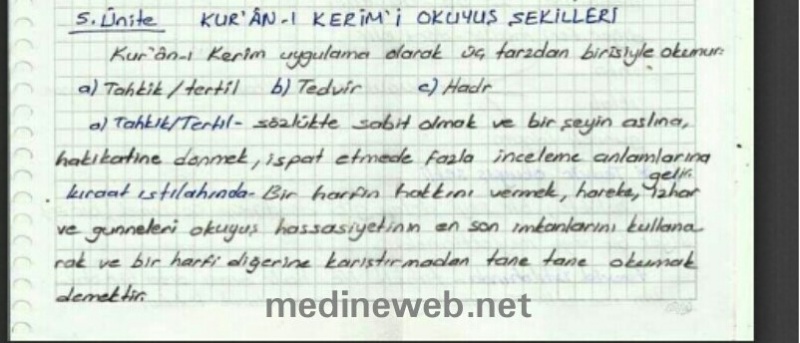 5. Ünite KUR'ÂN-I KERİM'İ OKUYUŞ ŞEKİLLERİ
Kur'ân-ı Kerim uygulama olarak üç tarzdan birisiyle okunur:
a) Tahkik / tertil b) Tedvir c) Hadr
a) Tahkik/Tertil- sözlükte sabit olmak ve bir şeyin aslına,
hakikatine dönmek, ispat etmede fazla inceleme anlamlarına
gelir.
kıraat ıstılahında- Bir harfin hakkını vermek, hareke, izhar
ve gunneleri okuyuş hassasiyetinin en son imkanlarını kullana
rak ve bir harfi diğerine karıştırmadan tane tane okumak
demektir.
medineweb.net